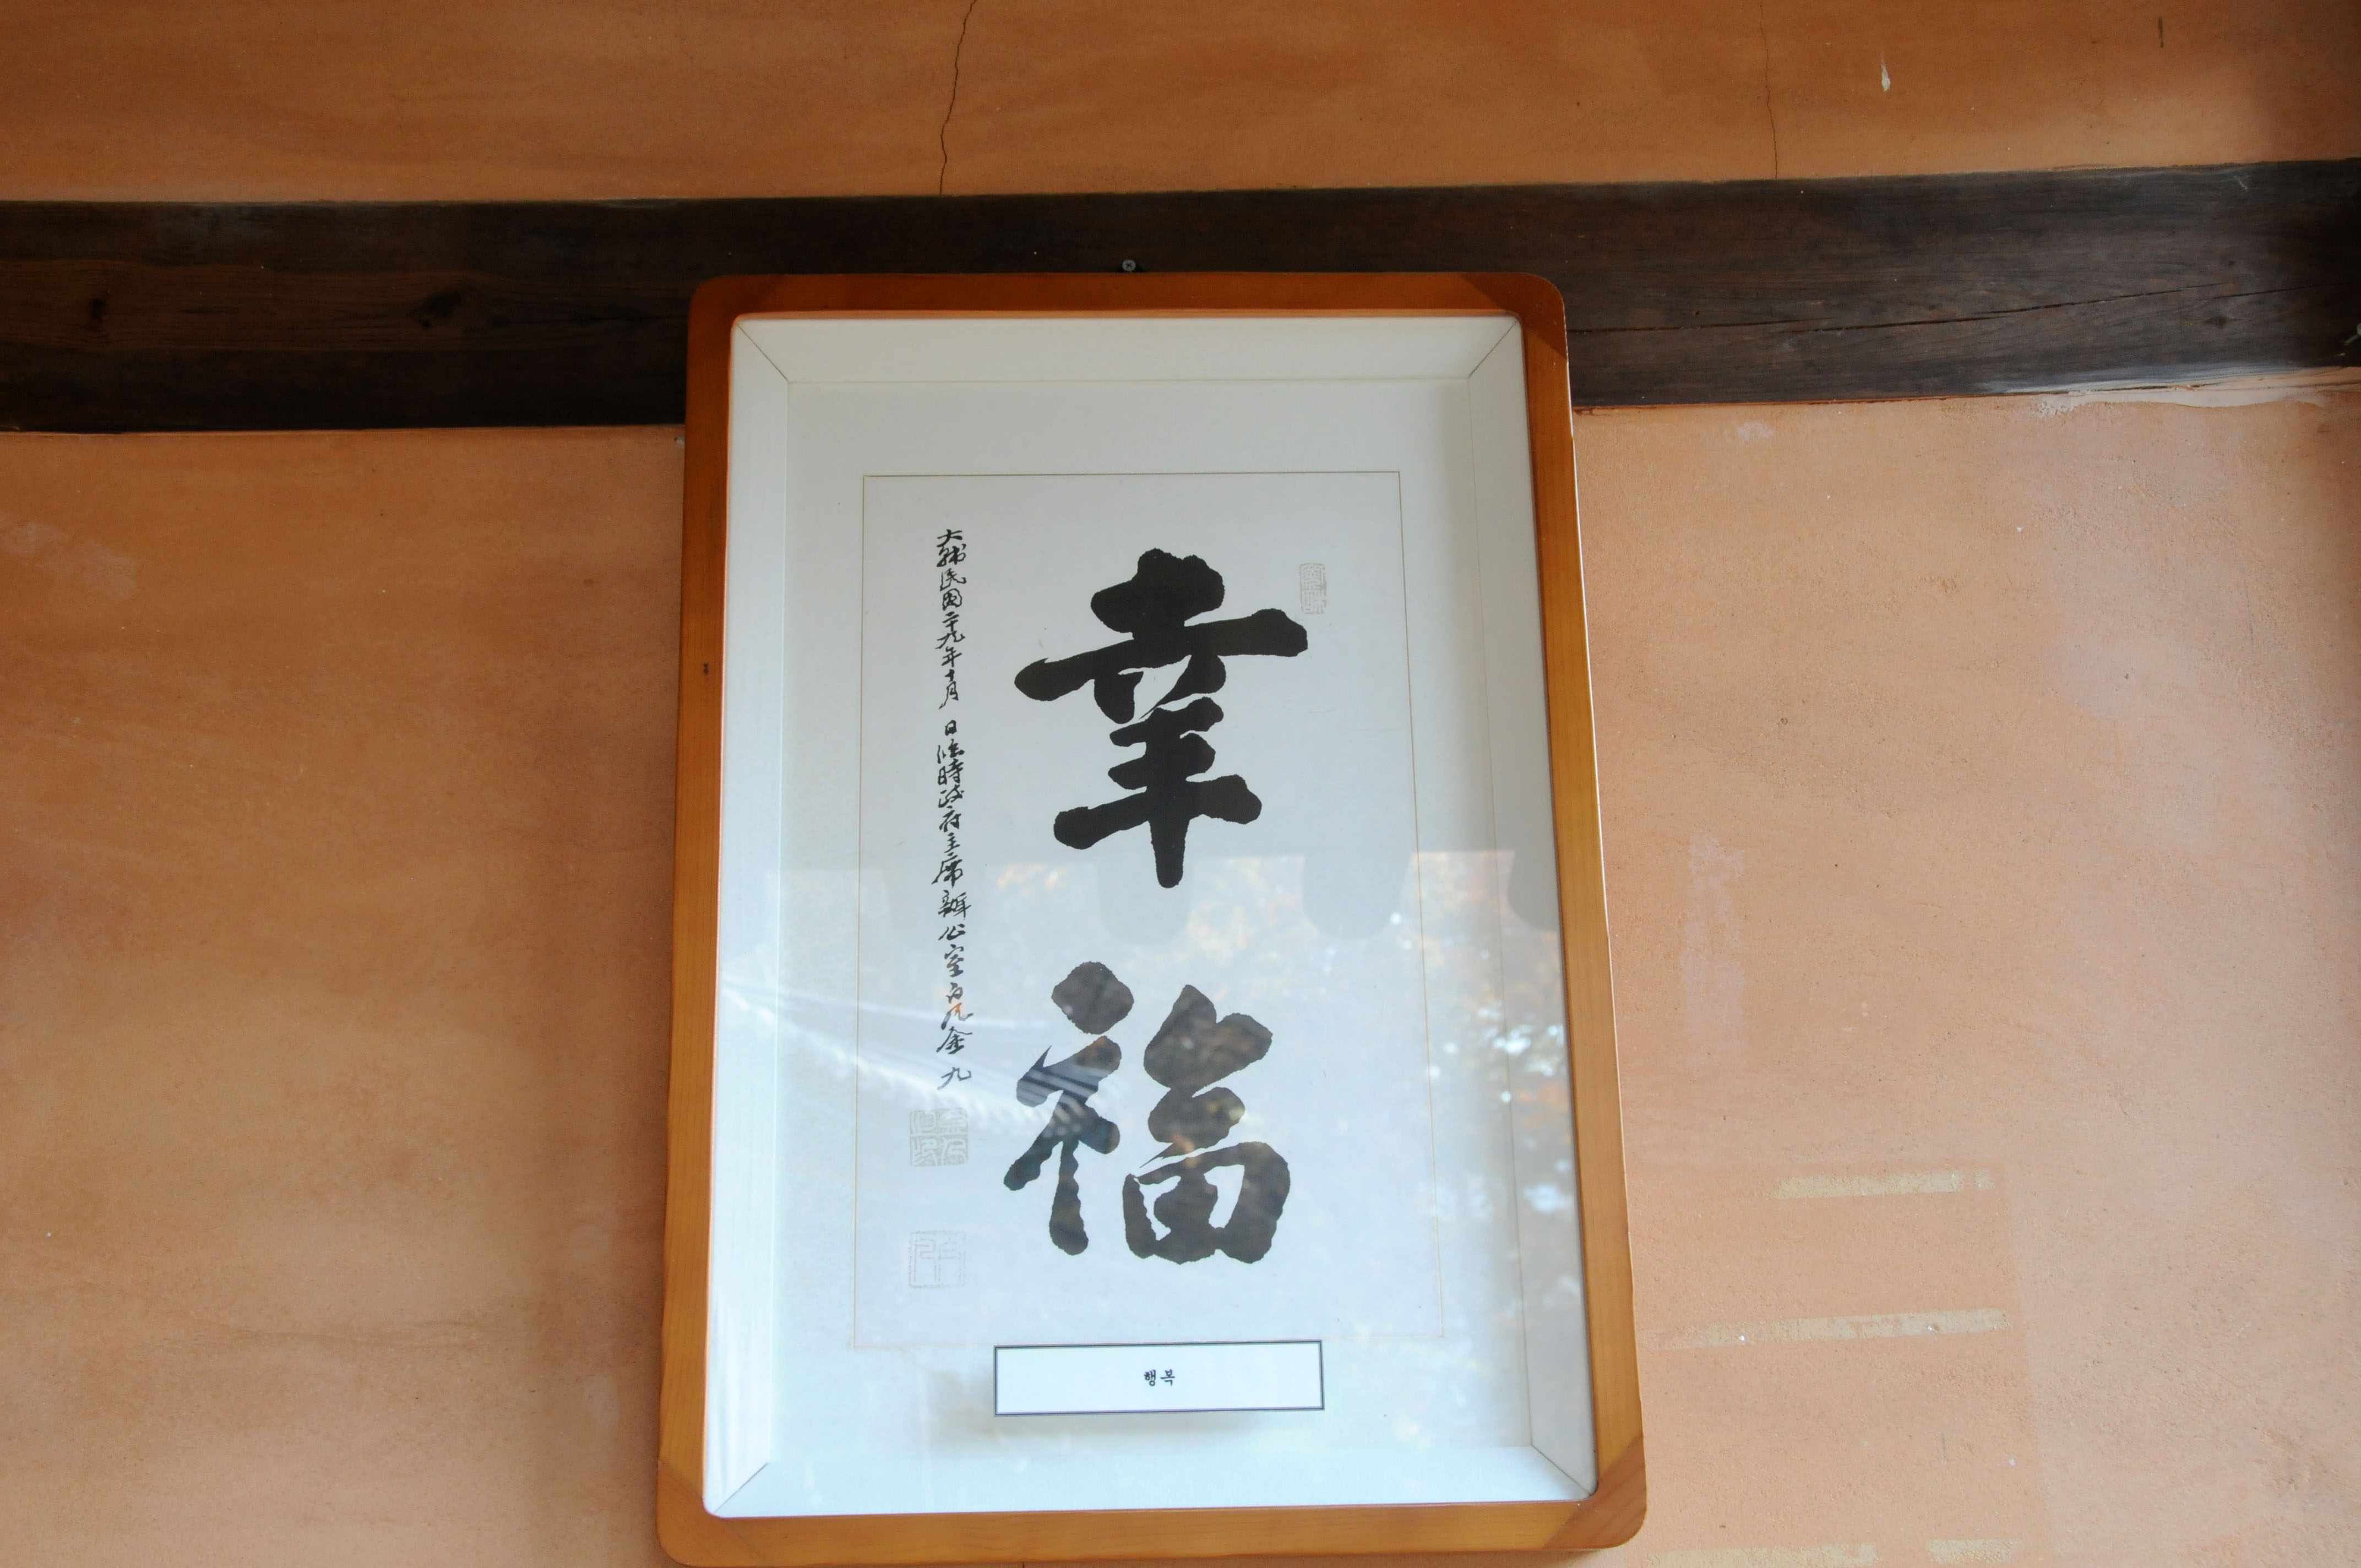 幸福
大韓民國二十九年十月 日臨時政府主席辦公室白凡金九
행복